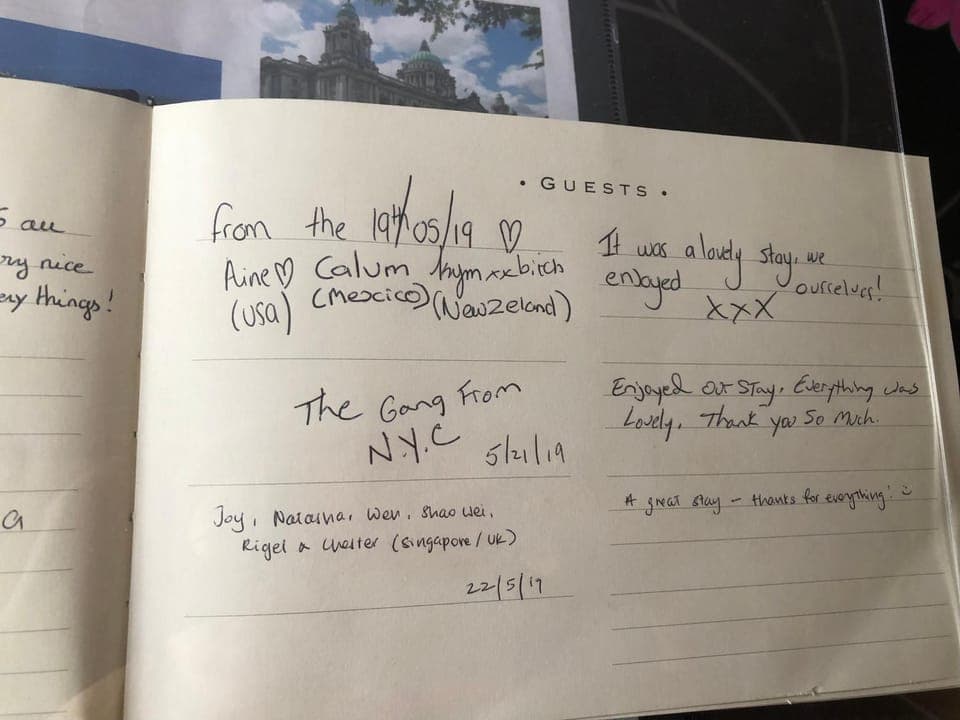 au
ry nice
ery things!
a
• GUESTS •
from the 19th/05/19 ♡
Aine♡ Calum Kym xx bitch
(USA) (Mexico) (Newzeland)
It was a lovely stay, we
enjoyed ourselves!
XxX
The Gang From
N.Y.C 5/21/19
Enjoyed our Stay. Everything was
Lovely. Thank you So Much.
Joy, Natasha, Wen, Shao Wei,
Rigel & Chester (Singapore / UK)
22/5/19
A great stay - thanks for everything! :)